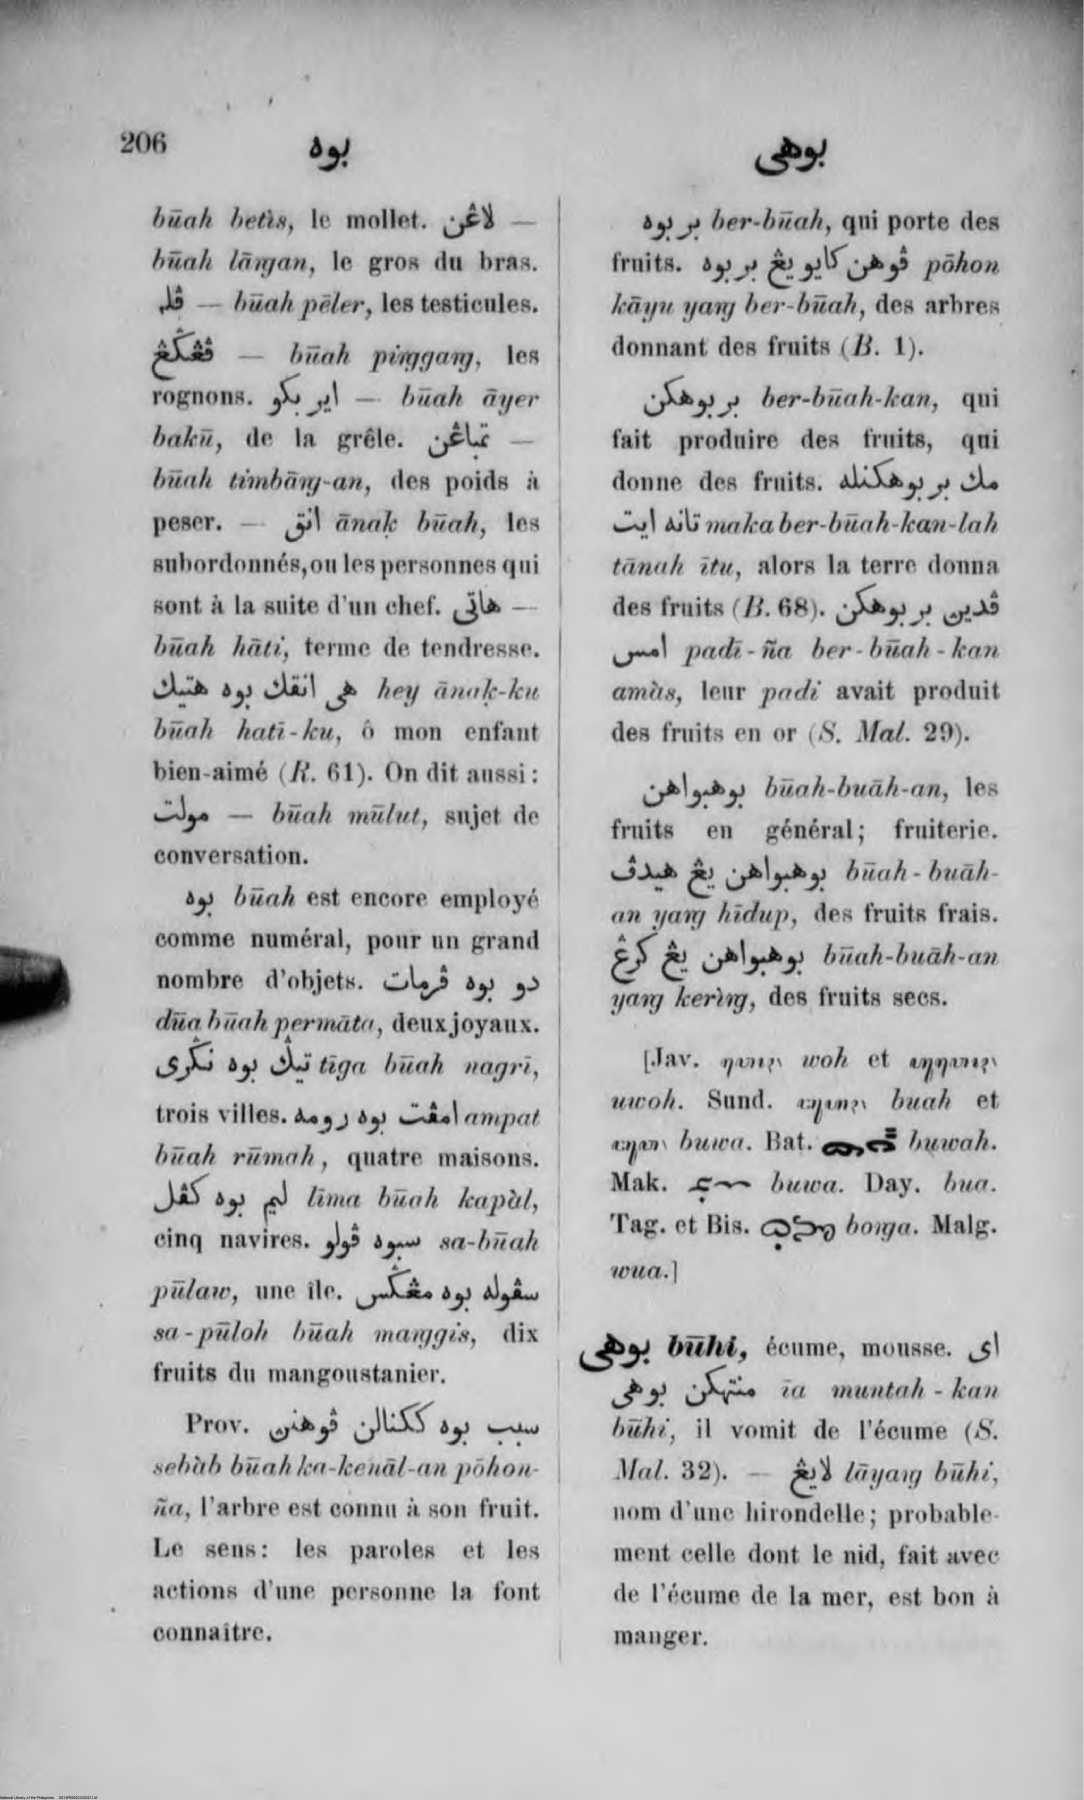 206
بوه
بوهي
būah betìs, le mollet. لاڠن —
būah lāṅgan, le gros du bras.
ڤلر — būah pēler, les testicules.
ڤڠݢڠ — būah piṅggaṅg, les
rognons. اير بكو — būah āyer
bakū, de la grêle. تمباڠن —
būah timbāṅg-an, des poids à
peser. — انق ānaḳ būah, les
subordonnés, ou les personnes qui
sont à la suite d'un chef. هاتي —
būah hāti, terme de tendresse.
هي انقك بوه هتيك hey ānaḳ-ku
būah hatī-ku, ô mon enfant
bien-aimé (R. 61). On dit aussi:
مولت — būah mūlut, sujet de
conversation.
بوه būah est encore employé
comme numéral, pour un grand
nombre d'objets. دو بوه ڤرمات
dūa būah permāta, deux joyaux.
تيݢ بوه نݢري tīga būah nagrī,
trois villes. امڤت بوه رومه ampat
būah rūmah, quatre maisons.
ليم بوه كڤل līma būah kapàl,
cinq navires. سبوه ڤولو sa-būah
pūlaw, une île. سڤوله بوه مڠݢس
sa-pūloh būah maṅggis, dix
fruits du mangoustanier.
Prov. سبب بوه ككنالن ڤوهنڽ
sebàb būah ka-kenāl-an pōhon-
ña, l'arbre est connu à son fruit.
Le sens: les paroles et les
actions d'une personne la font
connaître.
بر بوه ber-būah, qui porte des
fruits. ڤوهن كايو يڠ بر بوه pōhon
kāyu yaṅg ber-būah, des arbres
donnant des fruits (B. 1).
بر بوهكن ber-būah-kan, qui
fait produire des fruits, qui
donne des fruits. مك بر بوهكنله
تانه ايت maka ber-būah-kan-lah
tānah ītu, alors la terre donna
des fruits (B. 68). ڤدين بر بوهكن
امس padī-ña ber-būah-kan
amàs, leur padi avait produit
des fruits en or (S. Mal. 29).
بوهبواهن būah-buāh-an, les
fruits en général; fruiterie.
بوهبواهن يڠ هيدڤ būah-buāh-
an yaṅg hīdup, des fruits frais.
بوهبواهن يڠ كرڠ būah-buāh-an
yaṅg kerìṅg, des fruits secs.
[Jav. woh et
uwoh. Sund. buah et
buwa. Bat. buwah.
Mak. buwa. Day. bua.
Tag. et Bis. boṅga. Malg.
wua.]
بوهي būhi, écume, mousse. اي
منتهكن بوهي īa muntah-kan
būhi, il vomit de l'écume (S.
Mal. 32). — لايڠ lāyaṅg būhi,
nom d'une hirondelle; probable-
ment celle dont le nid, fait avec
de l'écume de la mer, est bon à
manger.